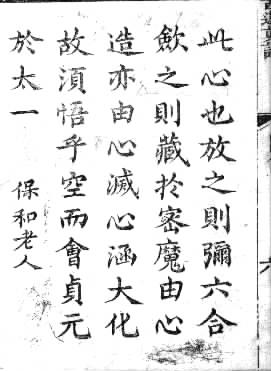 此心也放之則彌六合
斂之則藏扵密魔由心
造亦由心滅心涵大化
故須悟乎空而會貞元
於太一
保和老人
六